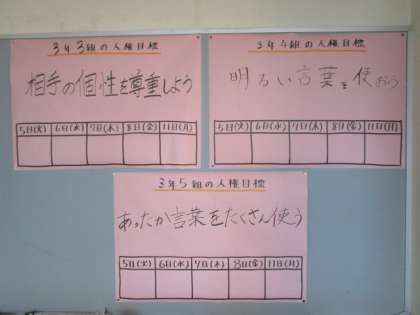 3年3組の人権目標
相手の個性を尊重しよう
5日(火) 6日(水) 7日(木) 8日(金) 11日(月)
3年4組の人権目標
明るい言葉を使おう
5日(火) 6日(水) 7日(木) 8日(金) 11日(月)
3年5組の人権目標
あったか言葉をたくさん使う
5日(火) 6日(水) 7日(木) 8日(金) 11日(月)